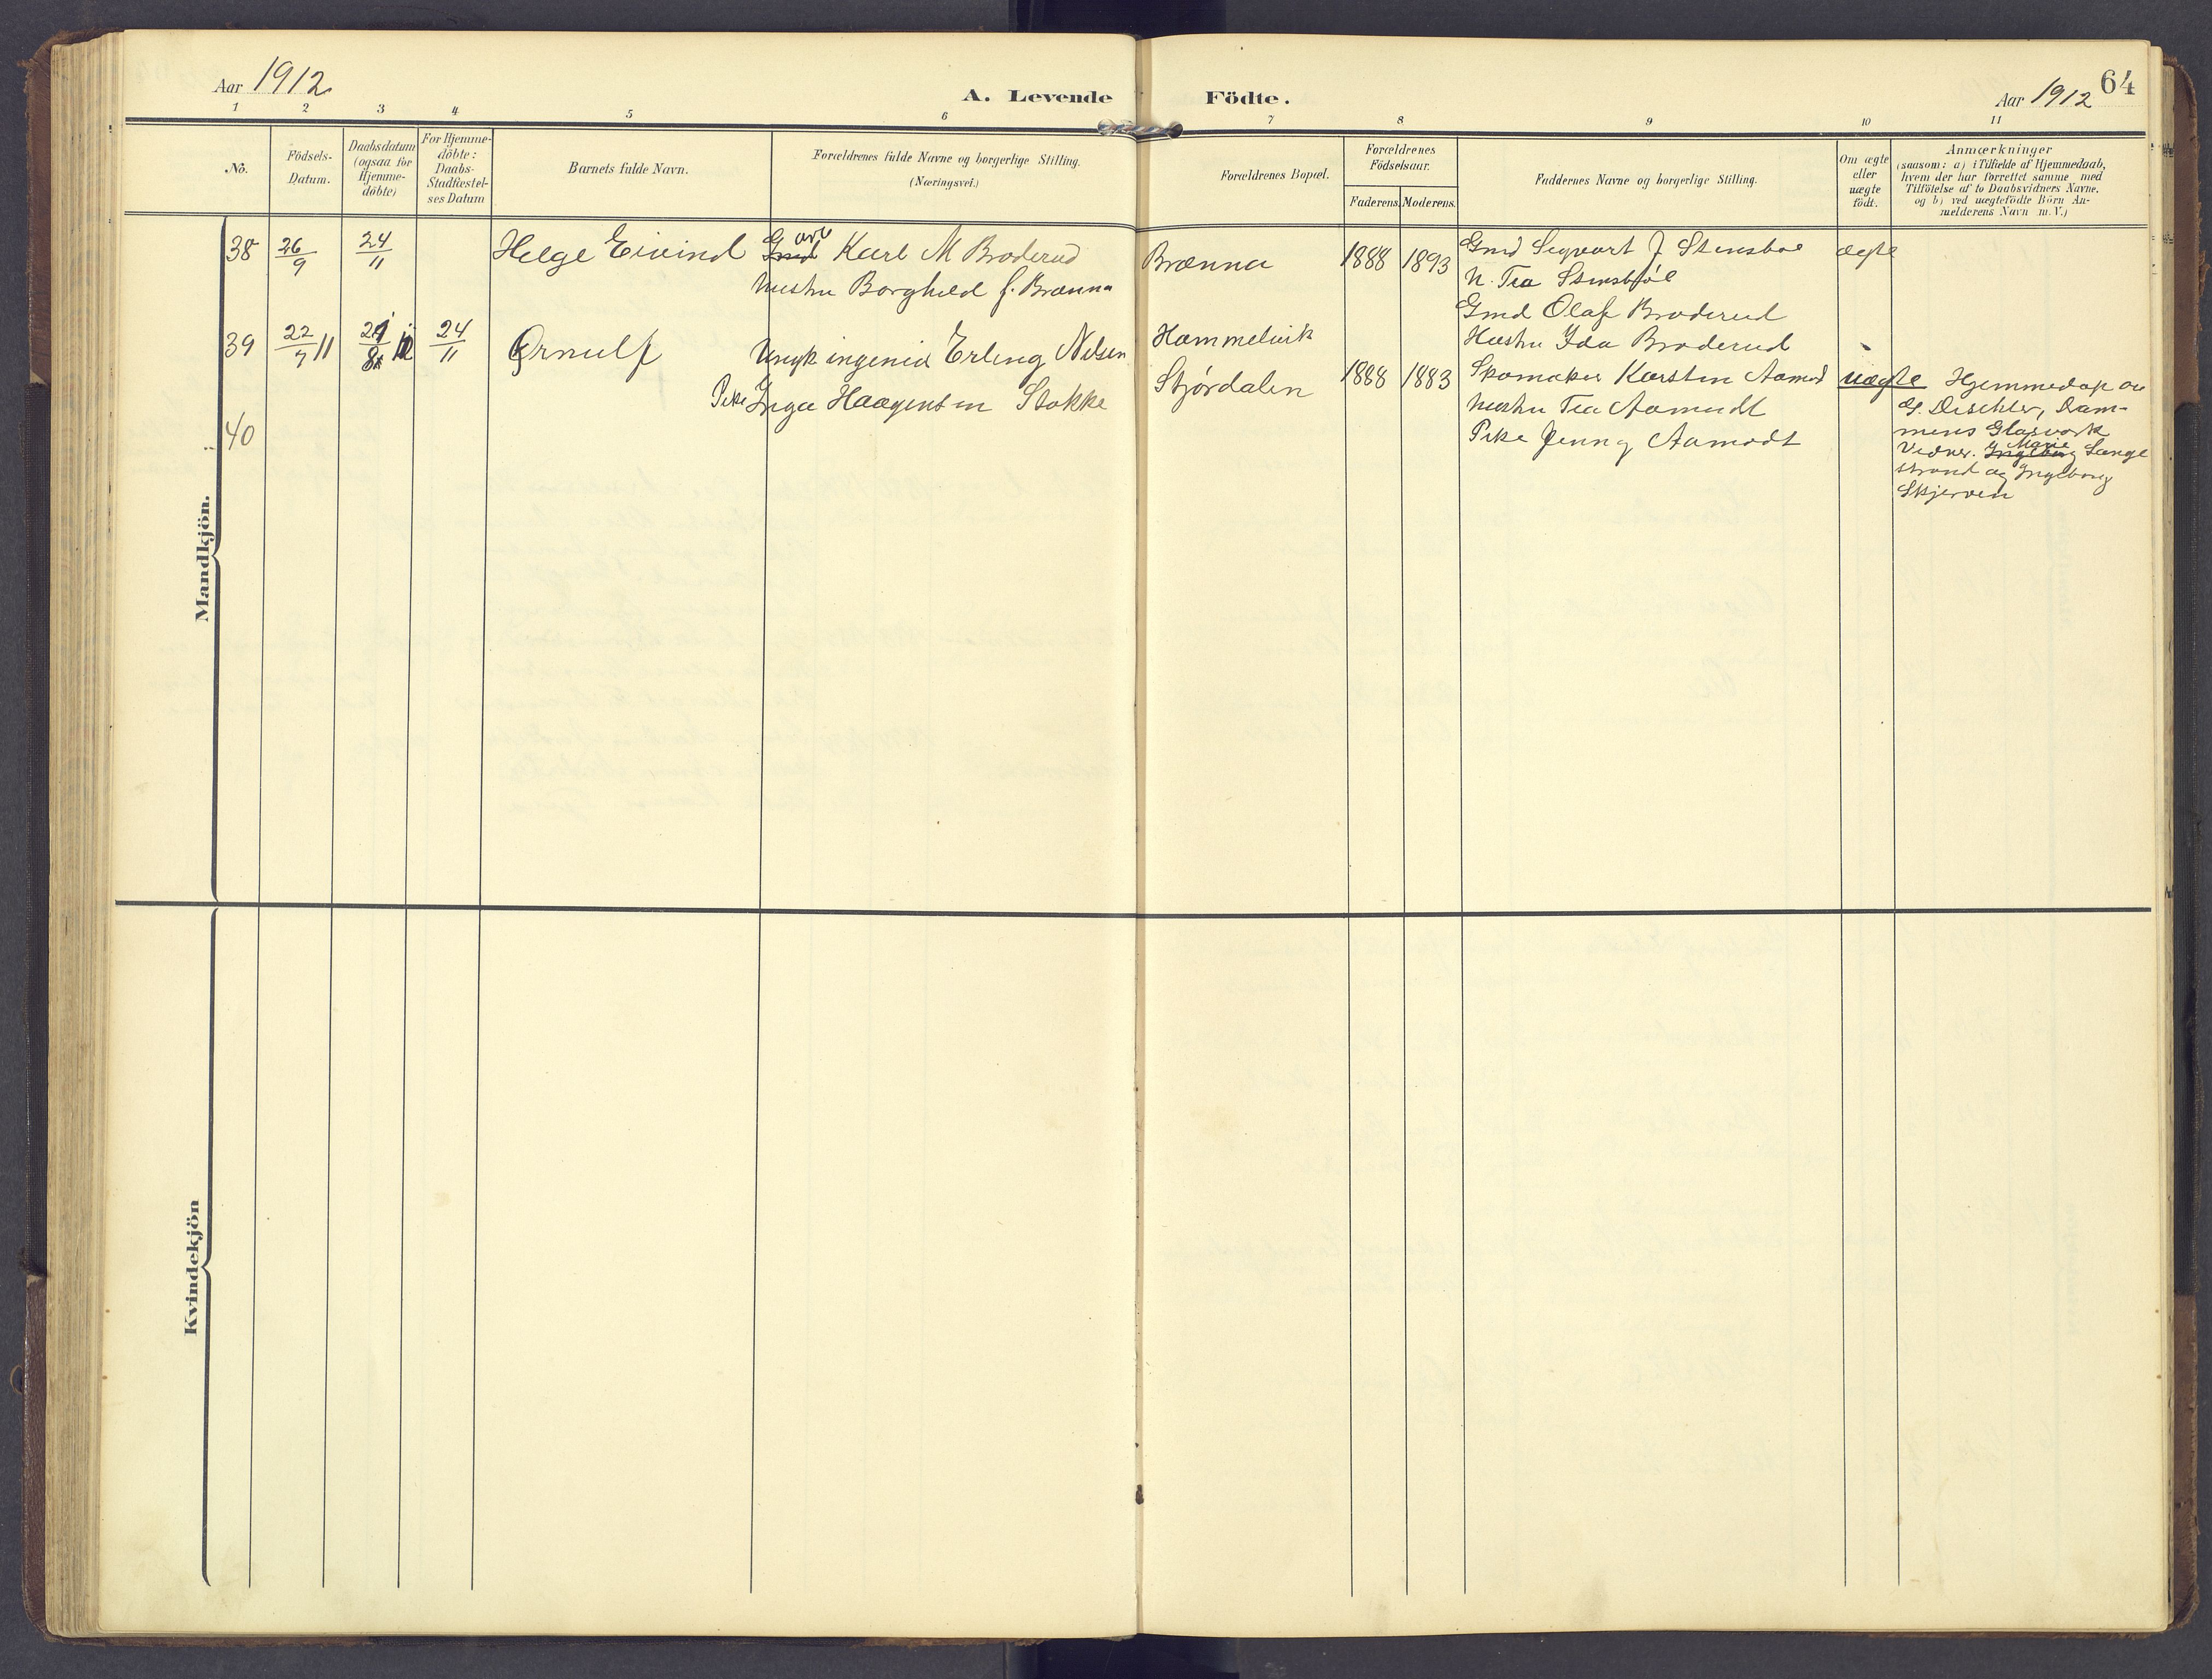 Aar 1912
A. Levende Födte.
Aar 1912
64
1 2 3 4 5 6 7 8 9 10 11
No.
Födsels-
Datum.
Daabsdatum
(ogsaa for
Hjemme-
döbte)
For Hjemme-
döbte:
Daabs-
Stadfæstel-
ses Datum
Barnets fulde Navn.
Forældrenes fulde Navne og borgerlige Stilling.
(Næringsvei.)
Forældrenes Bopæl.
Forældrenes
Födselsaar.
Faderens. Moderens.
Faddernes Navne og borgerlige Stilling.
Om ægte
eller
uægte
födt.
Anmærkninger
(saasom: a) i Tilfælde af Hjemmedaab,
hvem der har forrettet samme med
Tilföielse af to Daabsvidners Navne,
og b) ved uægtefödte Börn An-
melderens Navn m.V.)
Mandkjön.
38
26/9
24/11
Helge Eivind
Gmd arb Karl M Broderud
hustru Borghild f. Brænna
Brænna
1888 1893
Gmd Sigvart J Stensbøl
H. Tea Stensbøl
Gmd Olaf Broderud
Hustru Ida Broderud
ægte
39
22/7 11
24/11
Ørnulf
Ungk ingeniø Erling Nilsen
Pike Inga Haagensen Stokke
Hommelvik
Stjørdalen
1888 1883
Skomaker Karsten Aamodt
hustru Tea Aamodt
Pike Jenny Aamodt
uægte
Hjemmedøp av
G. Dischler, Dram-
mens Glasverk
Vidner. Ingeborg Marie Lange
strand og Ingeborg
Skjerven
40
Kvindekjön